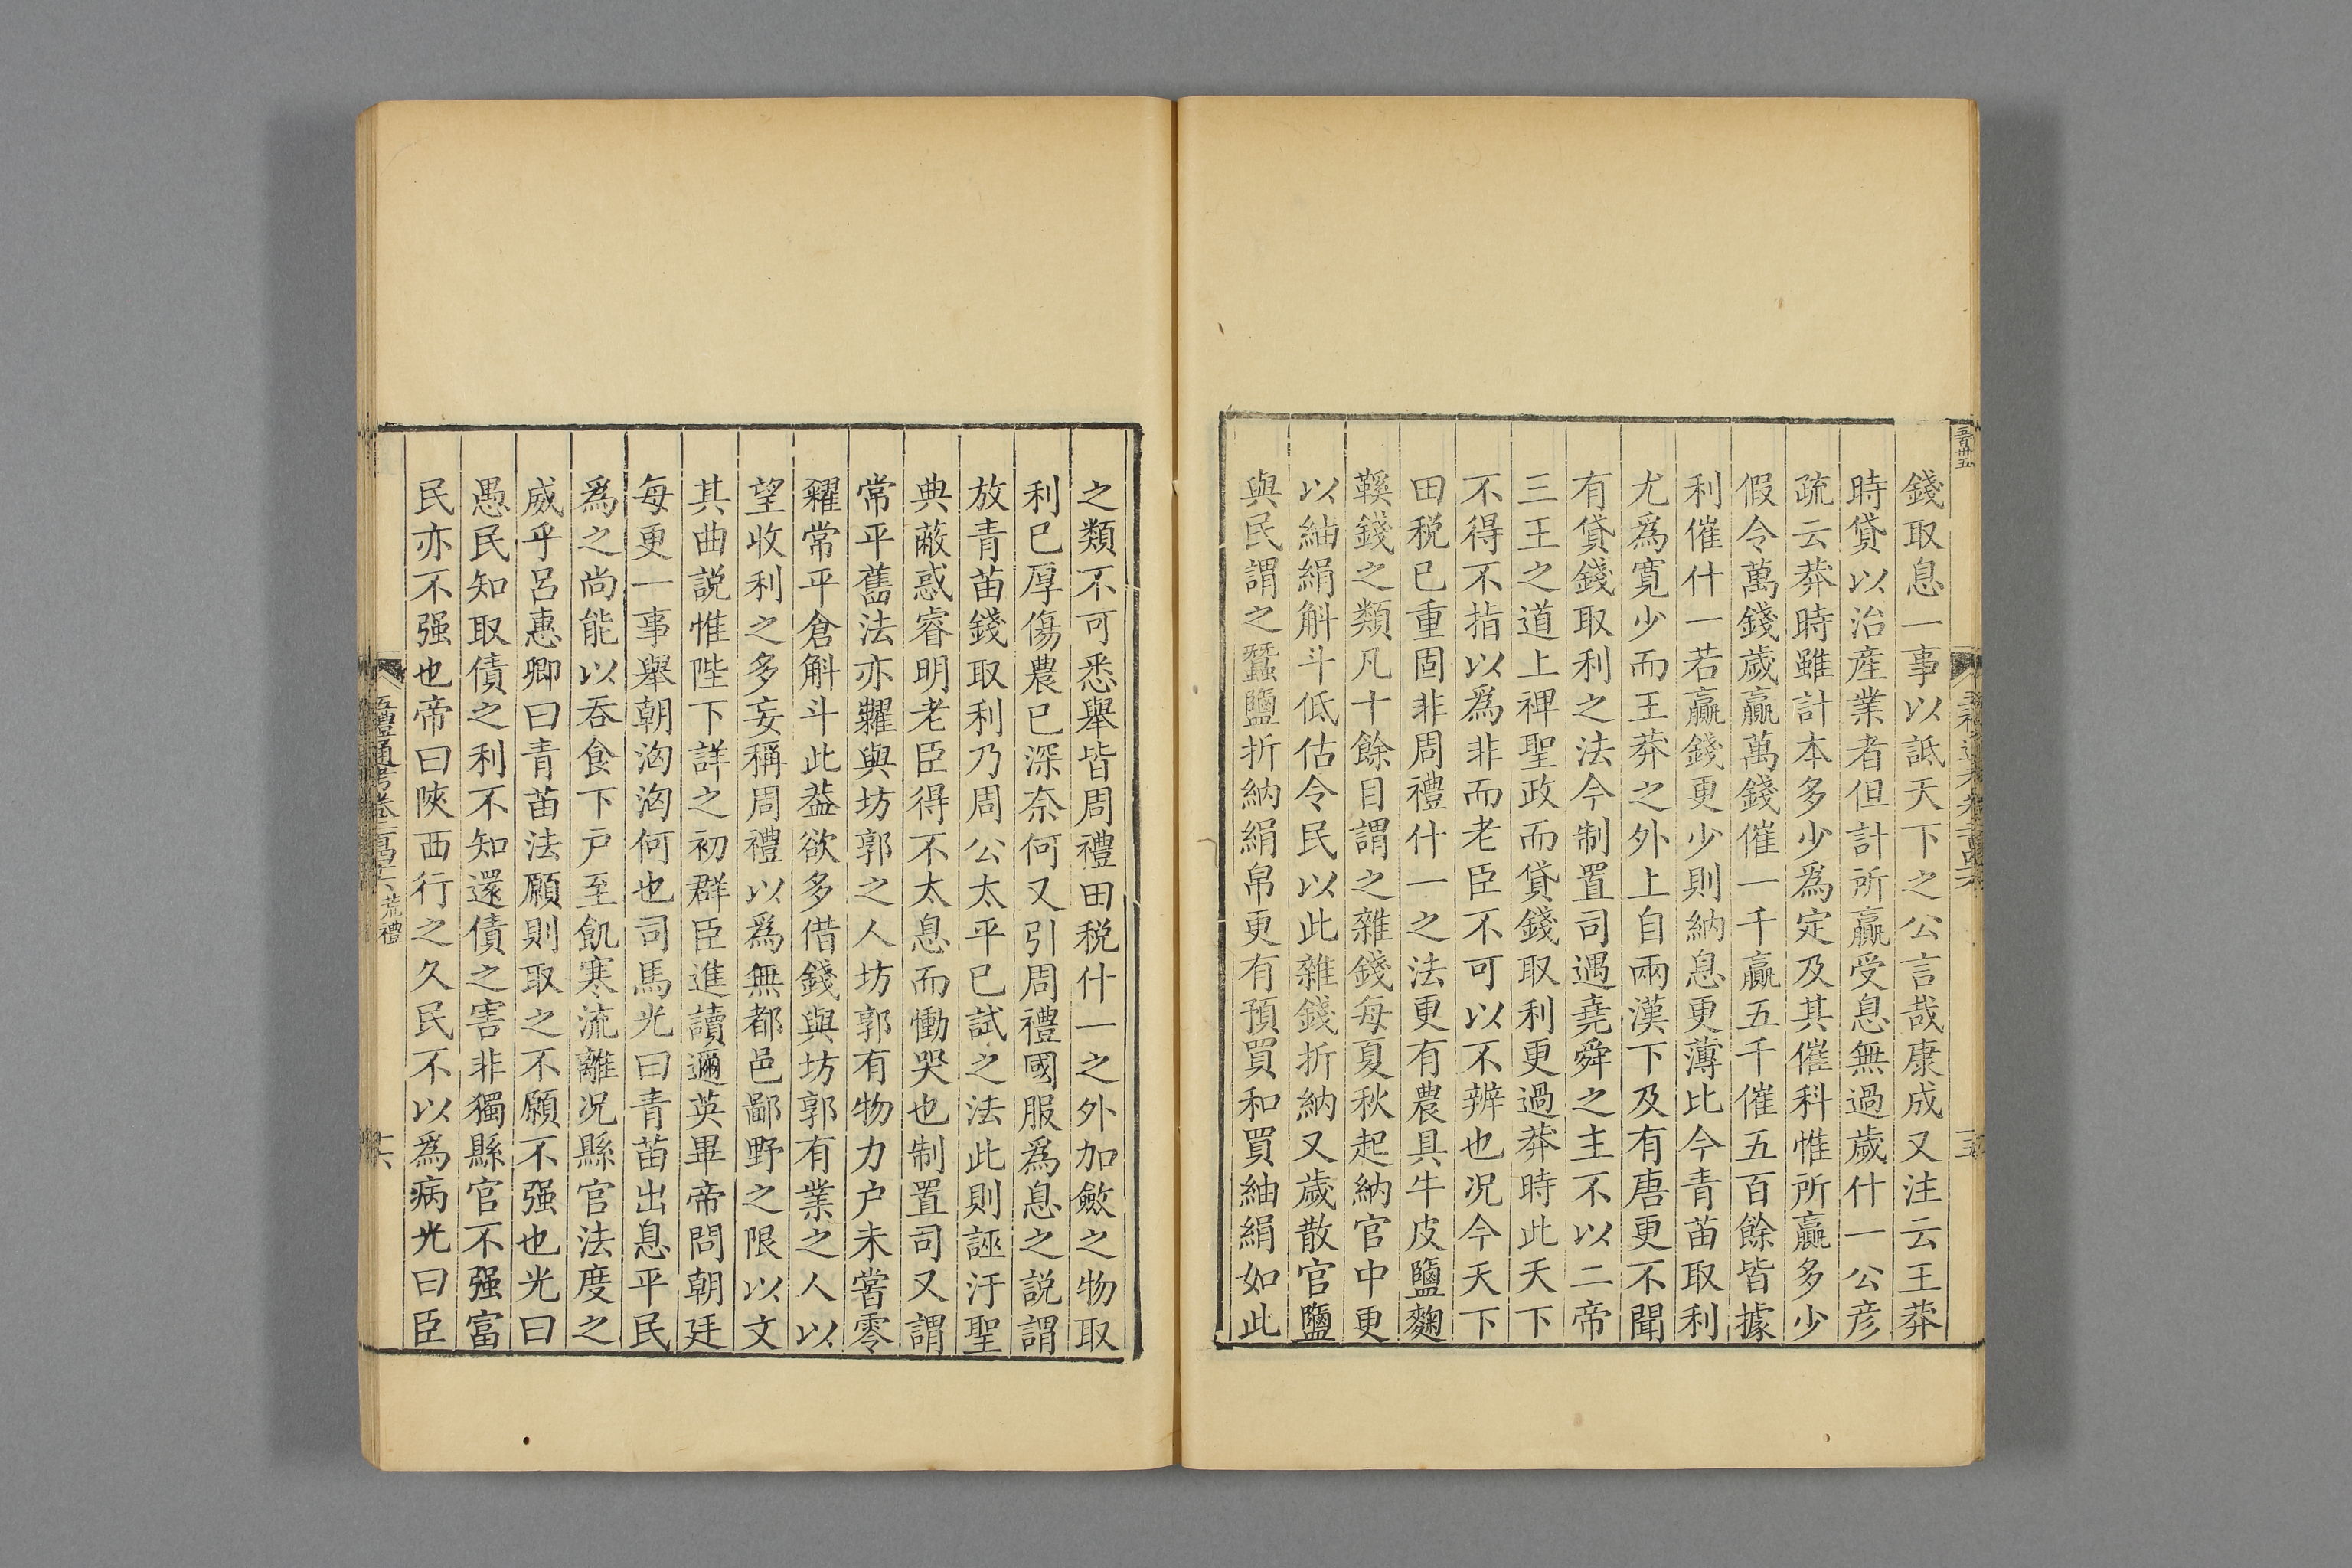 五百卅五
錢取息一事以詆天下之公言哉康成又注云王莽
時貸以治産業者但計所贏受息無過歲什一公彦
疏云莽時雖計本多少爲定及其催科惟所贏多少
假令萬錢歲贏萬錢催一千贏五千催五百餘皆據
利催什一若贏錢更少則納息更薄比今青苗取利
尤爲寛少而王莽之外上自兩漢下及有唐更不聞
有貸錢取利之法今制置司遇堯舜之主不以二帝
三王之道上禆聖政而貸錢取利更過莽時此天下
不得不指以爲非而老臣不可以不辨也况今天下
田税已重固非周禮什一之法更有農具牛皮鹽麴
鞵錢之類凡十餘目謂之雜錢每夏秋起納官中更
以紬絹斛斗低估令民以此雜錢折納又歲散官鹽
與民謂之蠶鹽折納絹帛更有預買和買紬絹如此
之類不可悉舉皆周禮田税什一之外加斂之物取
利已厚傷農已深奈何又引周禮國服爲息之説謂
放青苗錢取利乃周公太平已試之法此則誣汙聖
典蔽惑睿明老臣得不太息而慟哭也制置司又謂
常平舊法亦糶與坊郭之人坊郭有物力户未嘗零
糴常平倉斛斗此葢欲多借錢與坊郭有業之人以
望收利之多妄稱周禮以爲無都邑鄙野之限以文
其曲説惟陛下詳之初群臣進讀邇英畢帝問朝廷
每更一事舉朝洶洶何也司馬光曰青苗出息平民
爲之尚能以吞食下户至飢寒流離况縣官法度之
威乎呂惠卿曰青苗法願則取之不願不强也光曰
愚民知取債之利不知還債之害非獨縣官不强富
民亦不强也帝曰陜西行之久民不以爲病光曰臣
五禮通考卷二百四十六 荒禮